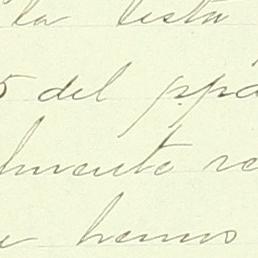 la lista
5 del ppd
lmente re
e hemos